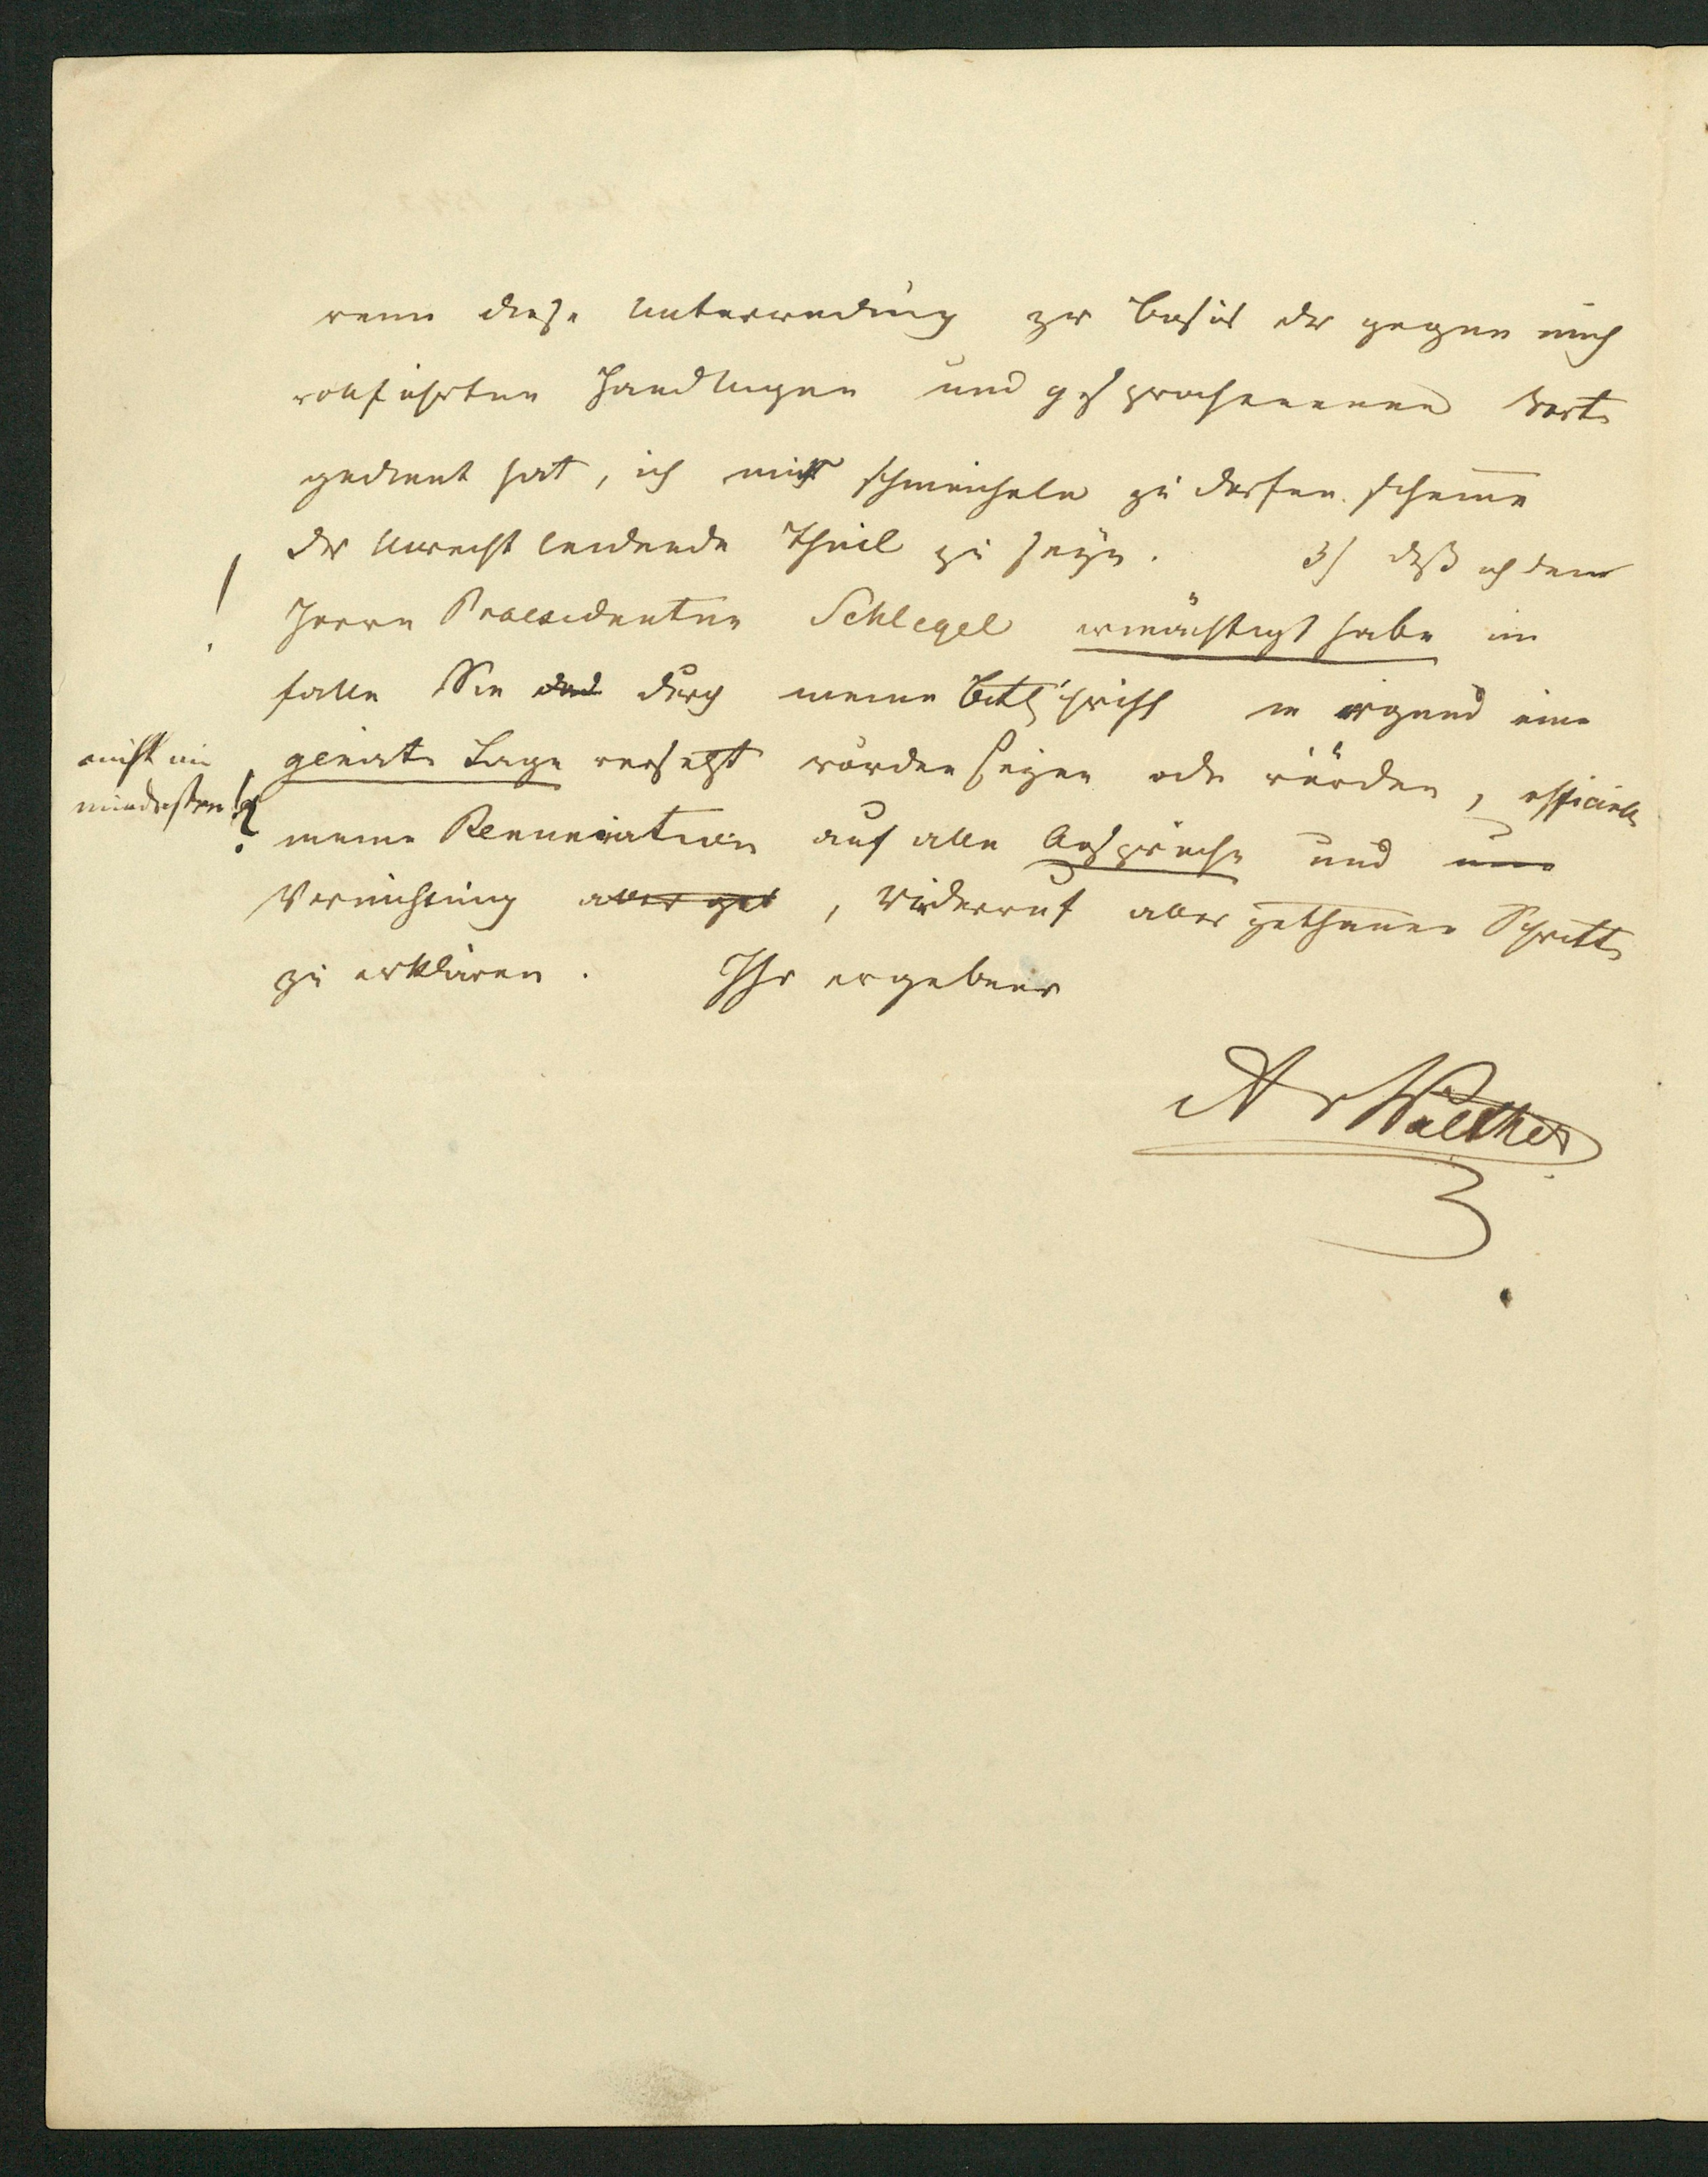 wenn diese Unterredung zur Basis der gegen mich
vollführten Handlungen und gesprochenenen Worte
gedient hat, ich mich schmeicheln zu dörfen scheine
der Unrecht leidende Theil zu seyn. 3) daß ich dem
!
Herrn Praesidenten Schlegel ermächtigt habe im
falle Sie durch meine Bittschrift in irgend eine
nicht im
mindesten!?
genirte Lage versetzt worden seyen oder würden, officiell
meine Renunciation auf alle Ansprüche und
Vernichtung aller get, Widerruf aller gethanen Schritte
zu erklären. Ihr ergebner
A v Walther